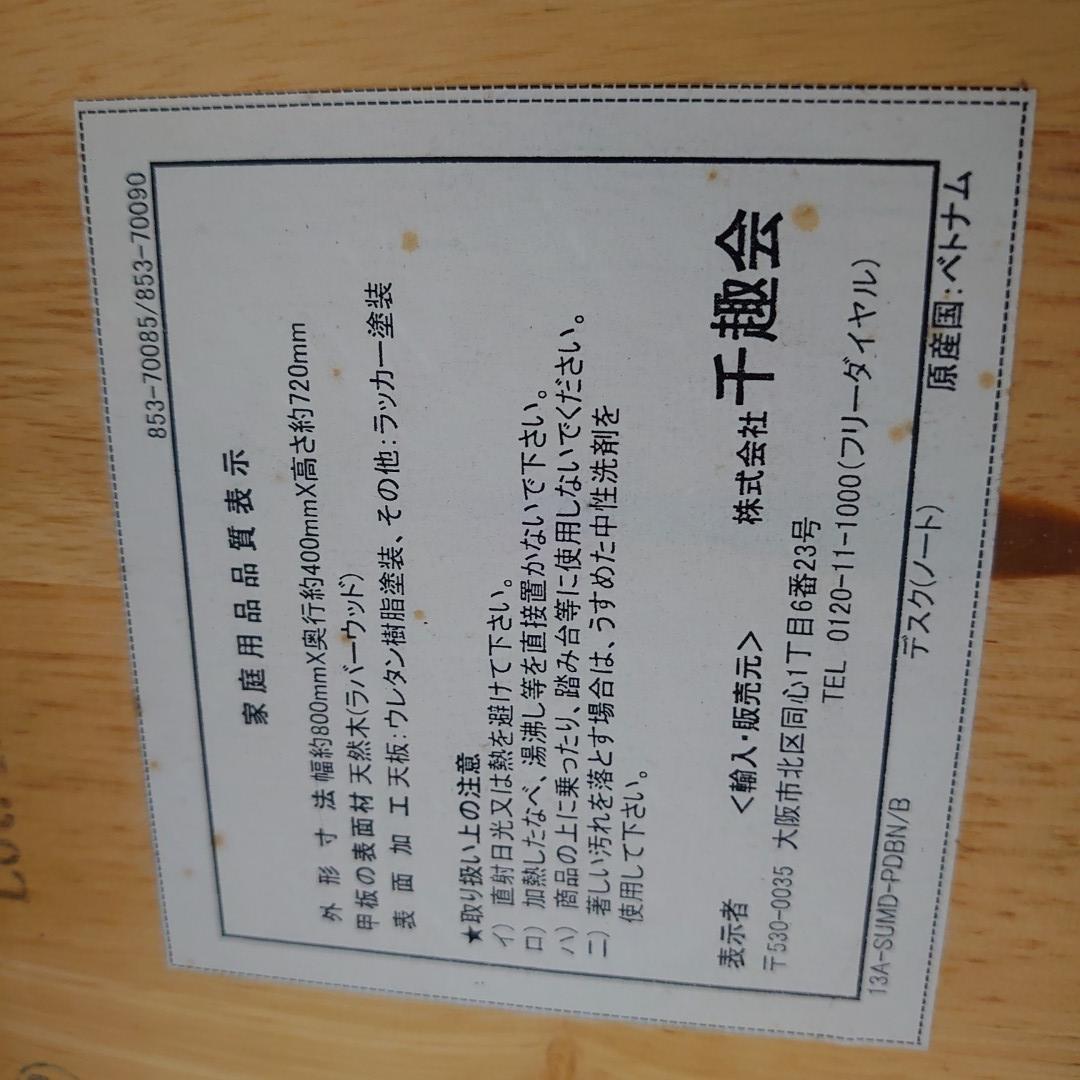 853-70085/853-70090
家庭用品品質表示
外形寸法 幅約800mmX奥行約400mmX高さ約720mm
甲板の表面材 天然木(ラバーウッド)
表面加工 天板:ウレタン樹脂塗装、その他:ラッカー塗装
★取り扱い上の注意
イ) 直射日光又は熱を避けて下さい。
ロ) 加熱したなべ、湯沸し等を直接置かないで下さい。
ハ) 商品の上に乗ったり、踏み台等に使用しないでください。
ニ) 著しい汚れを落とす場合は、うすめた中性洗剤を
使用して下さい。
表示者 <輸入・販売元> 株式会社千趣会
〒530-0035 大阪市北区同心1丁目6番23号
TEL 0120-11-1000(フリーダイヤル)
13A-SUMD-PDBN/B デスク(ノート) 原産国:ベトナム